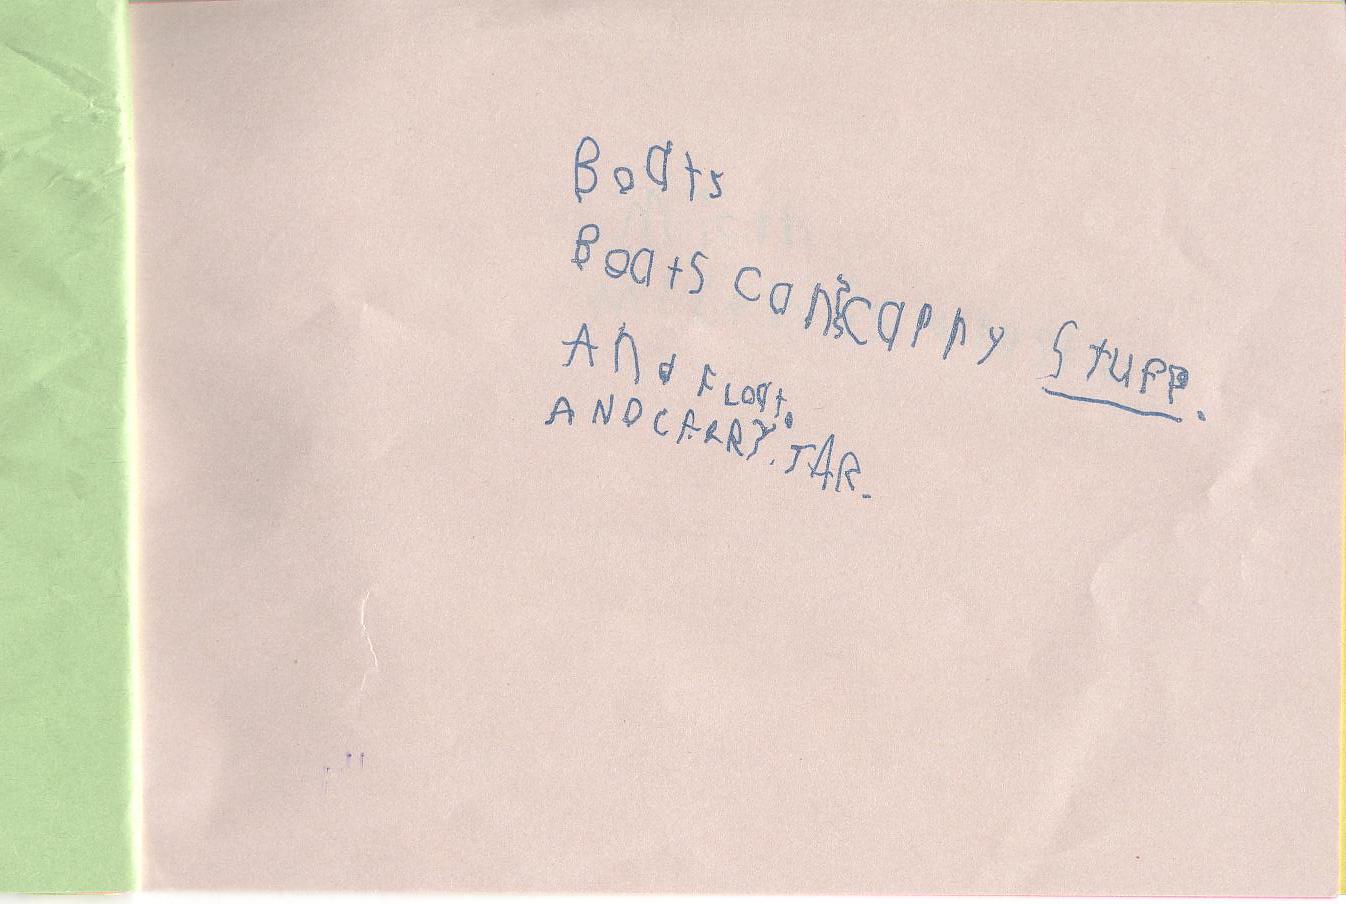 Boats
Boats can carry stuff.
And Float.
AND CARRY. TAR.